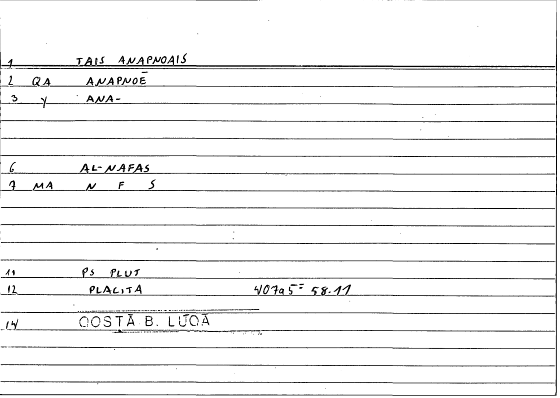 1 TAIS ANAPNOAIS
2 QA ANAPNOĒ
3 y ANA-
6 AL-NAFAS
7 MA N F S
11 PS PLUT
12 PLACITA 407a5 = 58.11
14 QOSTĀ B. LŪQĀ